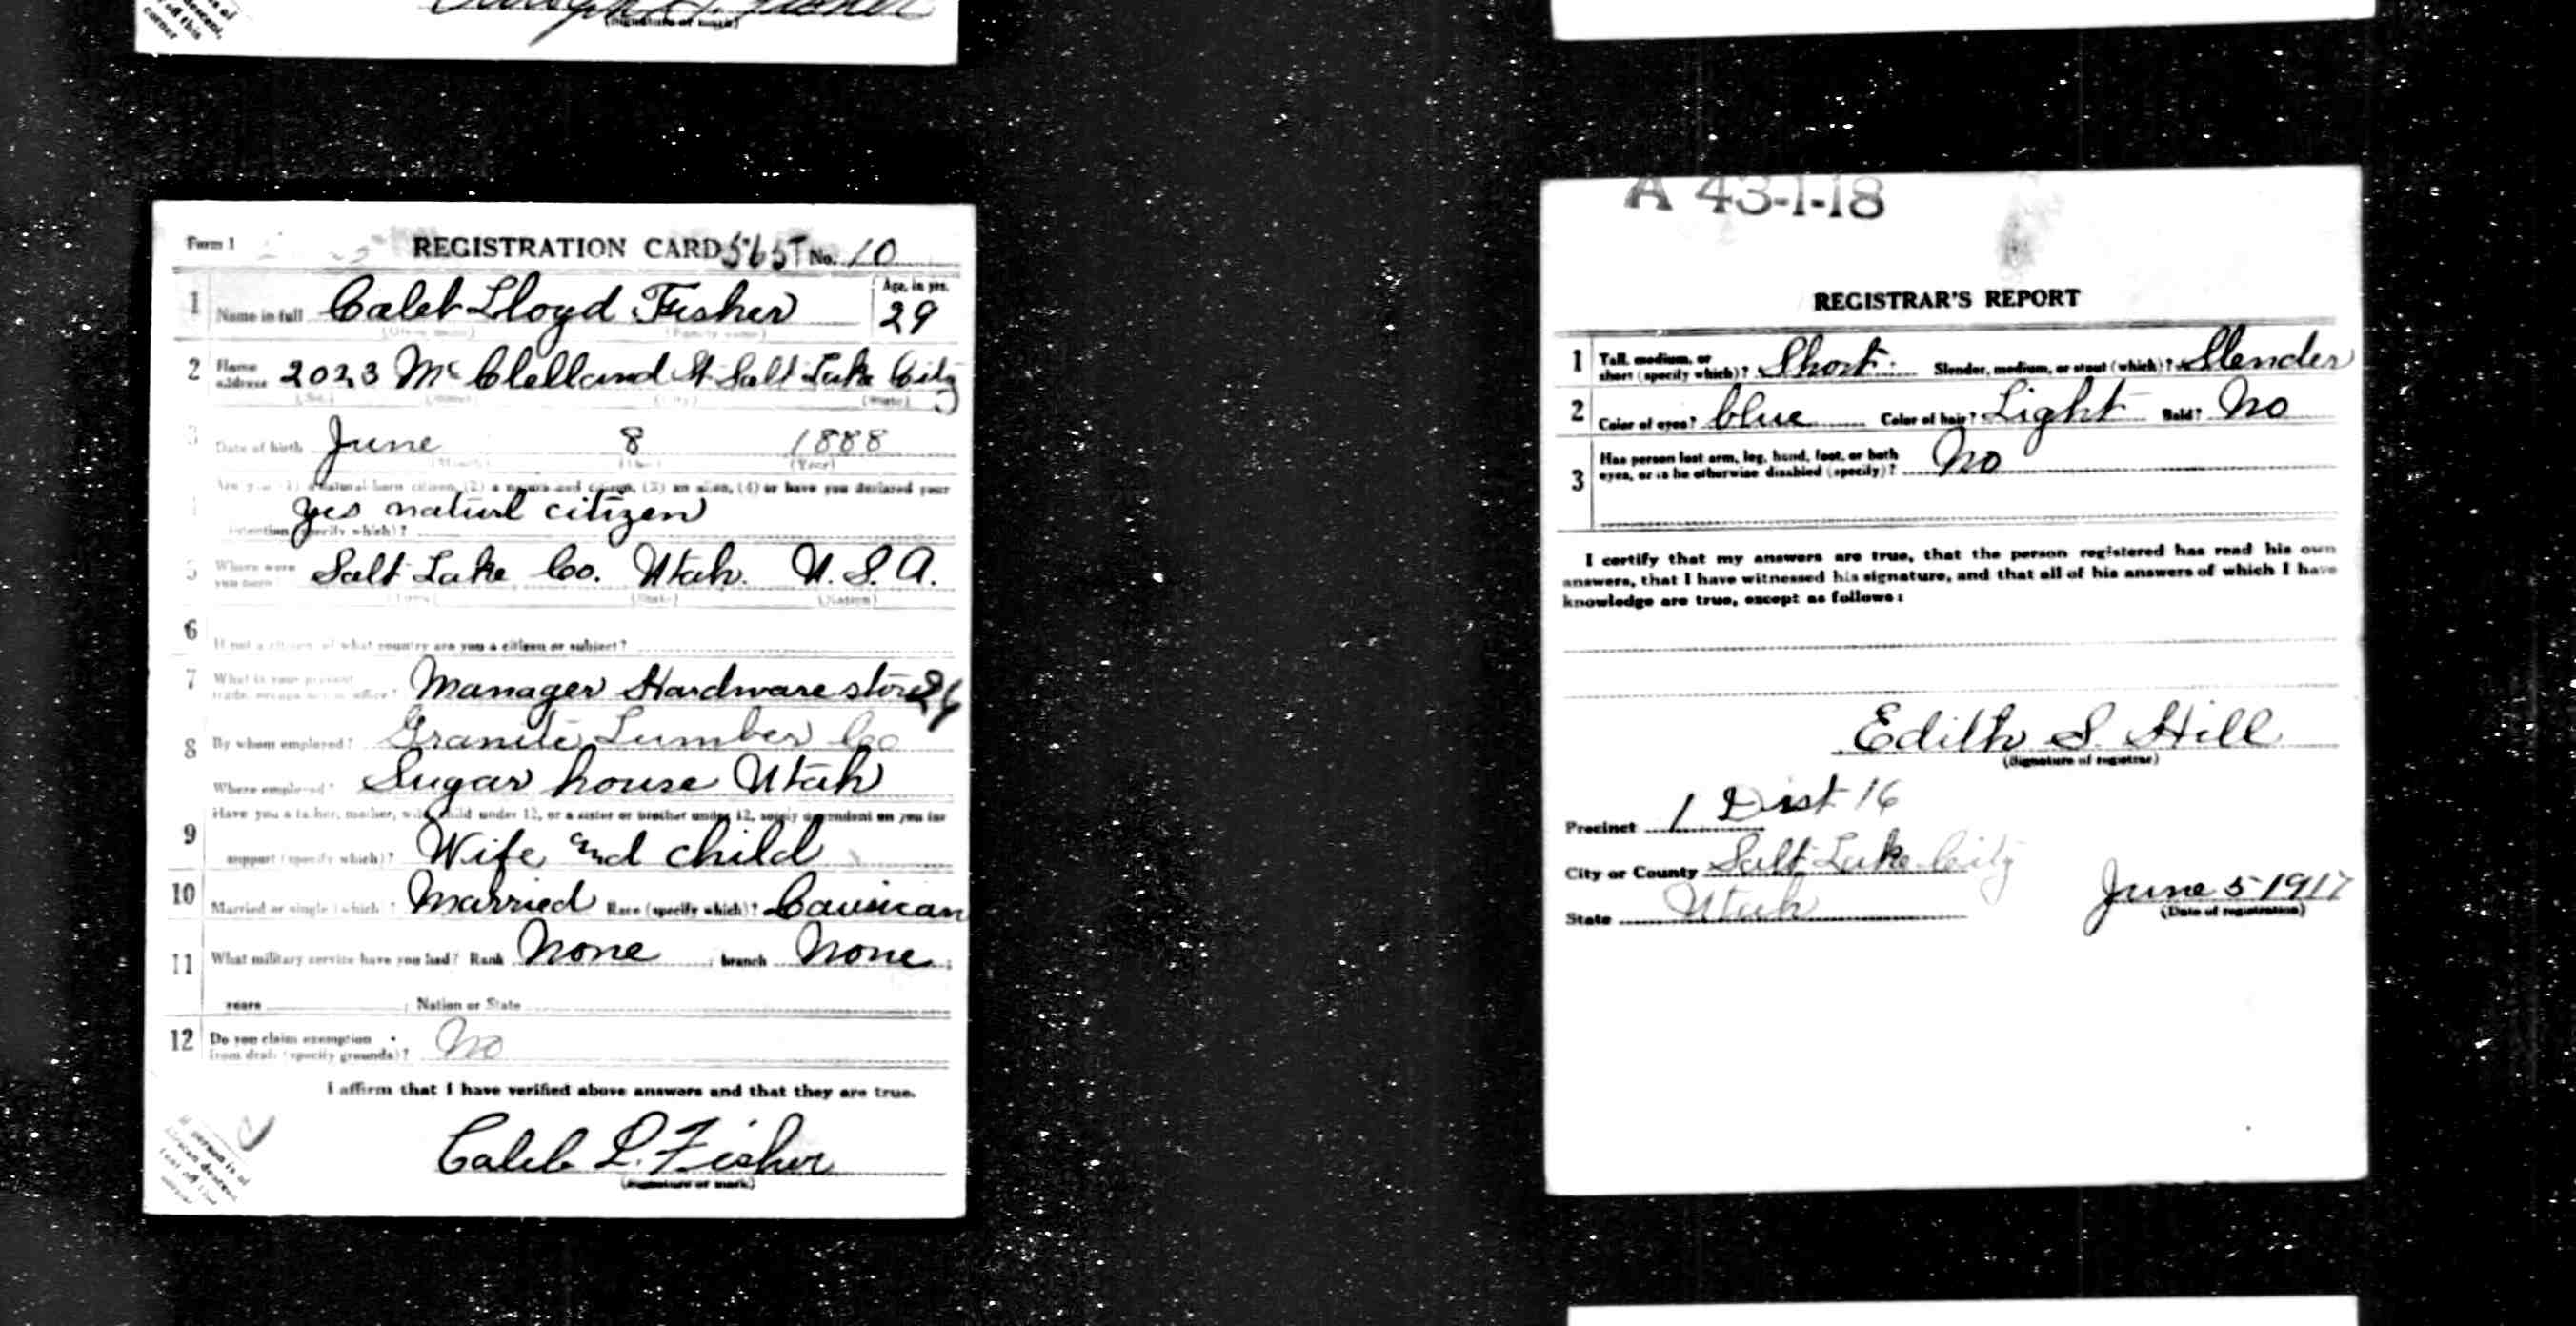 (Signature or mark)
corner
Form 1 REGISTRATION CARD 565 No. 10
1 Name in full Caleb Lloyd Fisher Age, in yrs. 29
(Given name) (Family name)
2 Home address 2023 McClelland St Salt Lake City
(No.) (Street) (City) (State)
3 Date of birth June 8 1888
(Month) (Day) (Year)
Are you (1) a natural-born citizen, (2) a naturalized citizen, (3) an alien, (4) or have you declared your
yes naturl citizen
intention (specify which)?
5 Where were you born? Salt Lake Co. Utah. U.S.A.
(Town) (State) (Nation)
6 If not a citizen, of what country are you a citizen or subject?
7 What is your present trade, occupation, or office? Manager Hardware store 24
8 By whom employed? Granite Lumber Co
Where employed? Sugar house Utah
9 Have you a father, mother, wife, child under 12, or a sister or brother under 12, solely dependent on you for
support (specify which)? Wife and child
10 Married or single (which)? Married Race (specify which)? Caucican
11 What military service have you had? Rank None ; branch None ;
years ; Nation or State
12 Do you claim exemption from draft (specify grounds)? No
I affirm that I have verified above answers and that they are true.
Caleb L. Fisher
(Signature or mark)
If person is of African descent, tear off this corner
A 43-1-18
REGISTRAR'S REPORT
1 Tall, medium, or short (specify which)? Short Slender, medium, or stout (which)? Slender
2 Color of eyes? blue Color of hair? Light Bald? No
3 Has person lost arm, leg, hand, foot, or both eyes, or is he otherwise disabled (specify)? No
I certify that my answers are true, that the person registered has read his own
answers, that I have witnessed his signature, and that all of his answers of which I have
knowledge are true, except as follows:
Edith S. Hill
(Signature of registrar)
Precinct 1 Dist 16
City or County Salt Lake City
State Utah
June 5-1917
(Date of registration)